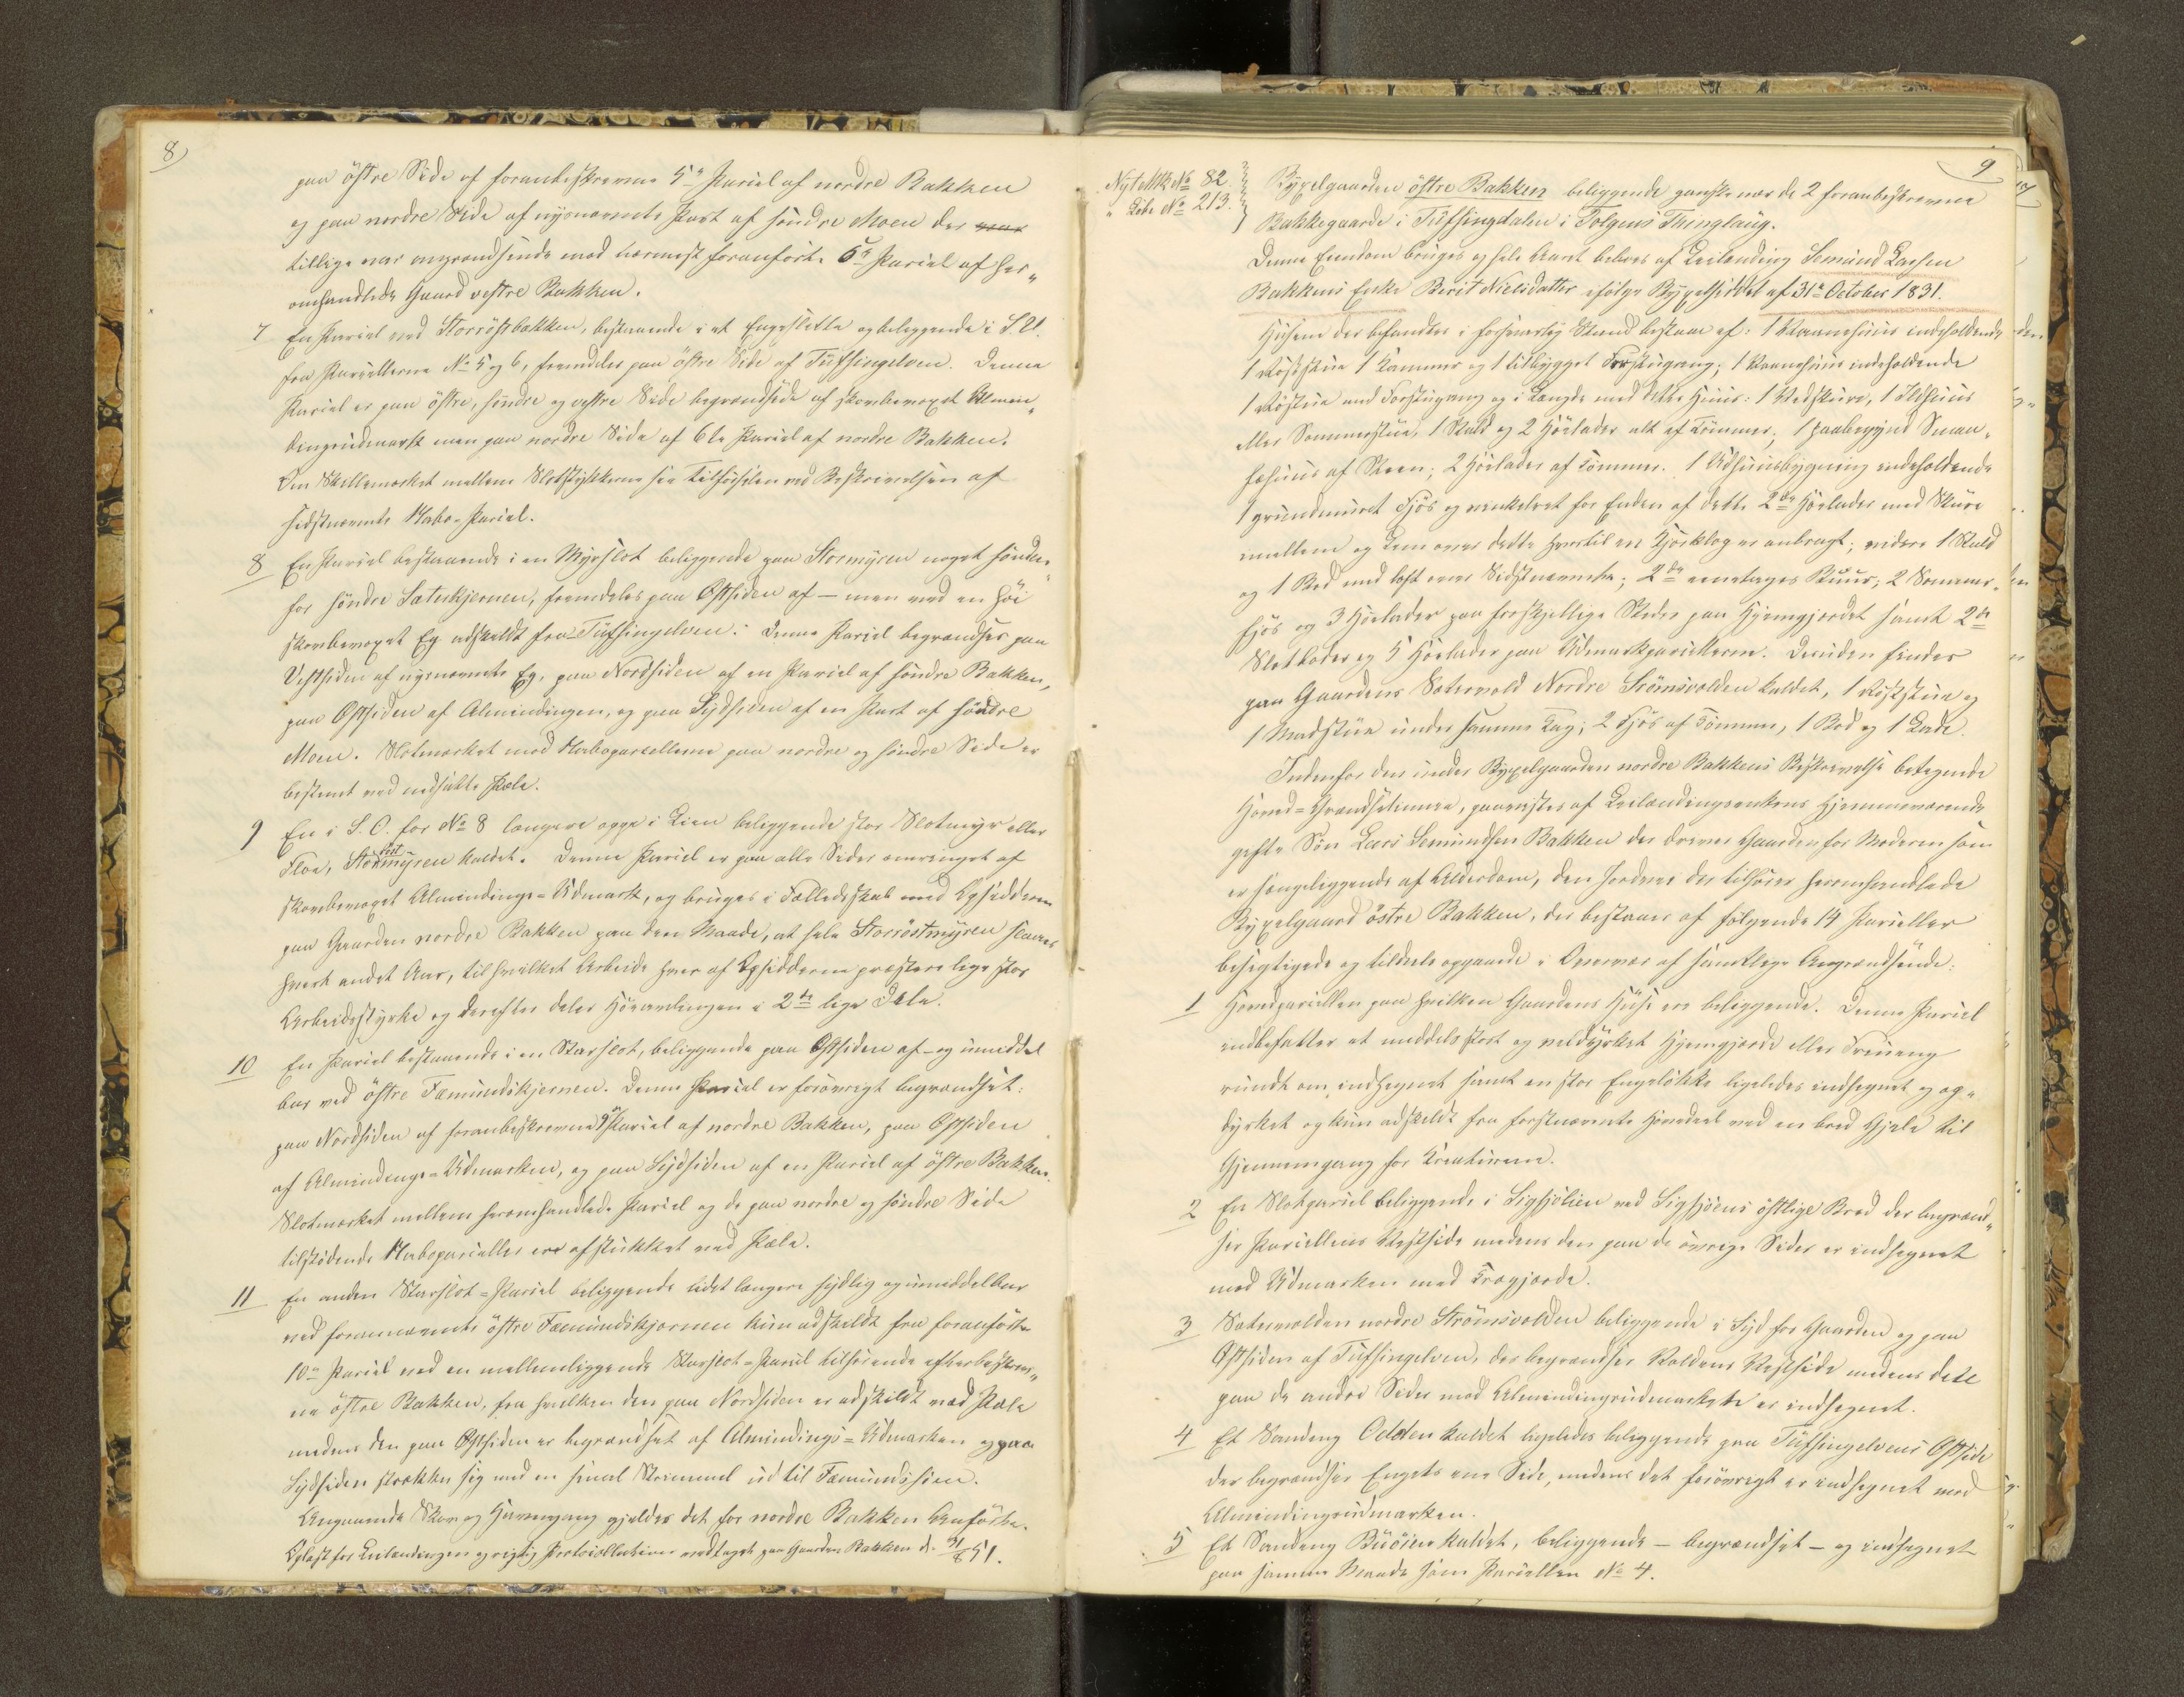 8)
paa östre Side af foranbeskrevne 5te Parcel af nordre Bakken
og paa nordre Side af nysnævnte Part af söndre Moen der
tillige var angrændsende mod nærmest foranförte 6te Parcel af her„
omhandlede Gaard vestre Bakken.
7 En Parcel ved Storröstbakken, bestaaende i et Engeslette og beliggende i S.V.
fra Parcellerne No 5 og 6, fremdeles paa östre Side af Tüfsingelven. Denne
Parcel er paa östre, söndre og vestre Side begrændset af skovbevoxet Almin„
dingsudmark men paa nordre Side af 6te Parcel af nordre Bakken.
Om Skillemærket mellem Slotstykkerne see Tilföielsen ved Beskrivelsen af
sidstnævnte Nabo-Parcel.
8 En Parcel bestaaende i en Myrslot beliggende paa Stormyren noget sönden„
for söndre Satertjernen, fremdeles paa Østsiden af – men ved en höi
skovbevoxet Eg adskeldt fra Tüfsingelven. Denne Parcel begrændses paa
Vestsiden af nysnævnte Eg, paa Nordsiden af en Parcel af söndre Bakken,
paa Østsiden af Almindingen, og paa Sydsiden af en Part af söndre
Moen. Slotmærket mod Naboparcellerne paa nordre og söndre Side er
bestemt ved nedsatte Pæle.
9 En i S.O. for No 8 længere oppe i Lien beliggende stor Slotmyr eller
Floe, Storröstmyren kaldet. Denne Parcel er paa alle Sider omringet af
skovbevoxet Almindings-Udmark, og bruges i Fælledsskab med Opsidderen
paa Gaarden nordre Bakken paa den Maade, at hele Storröstmyren slaaes
hvert andet Aar, til hvilket Arbeide hver af Opsidderne præstere lige stor
Arbeidsstyrke og derefter deles Höeavlingen i 2de lige Dele.
10 En Parcel bestaaende i en Starslot, beliggende paa Østsiden af – og umiddel
bar ved östre Fæmundstjernen. Denne Parcel er forövrigt begrændset:
paa Nordsiden af foranbeskrevne 9de Parcel af nordre Bakken, paa Østsiden
af Almindings-Udmarken, og paa Sydsiden af en Parcel af östre Bakken.
Slotmærket mellem heromhandlede Parcel og de paa nordre og söndre Side
tilstödende Naboparceller er afstukket ved Pæle.
11 En anden Starslot-Parcel beliggende lidt længere sydlig og umiddelbar
ved forannævnte östre Fæmundstjernen kun adskeldt fra foranförte
10de Parcel ved en mellemliggende Starslot-Parcel tilhörende efterbeskrev„
ne östre Bakken, fra hvilken den paa Nordsiden er adskeldt ved Pæle
medens den paa Østsiden er begrændset af Almindings-Udmarken og paa
Sydsiden strækker sig med en smal Strimmel ud til Fæmundssöen.
Angaaende Skov og Havnegang gjelder det for nordre Bakken Anförte.
Oplæst for Leilændingen og rigtig Protocollationen vedtaget paa Gaarden Bakken d. 31/8 51.
9
Nyt Mtk No 82.
" Löbe No 213.
Bygselgaarden östre Bakken beliggende ganske nær de 2 foranbeskrevne
Bakkegaarde i Tüfsingdalen i Tolgens Thinglaug.
Denne Eiendom bruges og hele Aaret beboes af Leilænding Semund Larsen
Bakkens Enke Berit Nielsdatter ifölge Bygselseddel af 31te October 1831.
Husene der befandtes i forsvarlig Stand bestaae af: 1 Vaanehuus indeholdende
1 Röststue 1 Kammer og 1 tilbygget Forstugang; 1 Vaanehuus indeholdende
1 Röstue med Forstugang og i Længde med dette Huus: 1 Vedskure, 1 Ildhuus
eller Sommerstue, 1 Stald og 2 Höelader alt af Tömmer; 1 paabegyndt Smaa„
fæhuus af Steen; 2 Höelader af Tömmer. 1 Udhuusbygning indeholdende
1 grundmuret Fjös og vinkelret for Enden af dette 2de Höelader med Skure
mellem og Lem over dette hvortil en Kjörklog er anbragt; videre 1 Stald
og 1 Bod med Loft over Sidstnævnte; 2de eenetages Stuur; 2 Sommer„
fjös og 3 Höelader paa forskjellige Steder paa Hjemgjordet samt 2de
Slotboder og 5 Höelader paa Udmarksparcellerne. Desuden findes
paa Gaardens Sætervold Nordre Strömsvolden kaldet, 1 Röststue og
1 Madstue under samme Tag; 2 Fjös af Tömmer, 1 Bod og 1 Lade.
Indenfor den under Bygselgaarden nordre Bakkens Beskrivelse betegnede
Hoved-Grændselinie, paavistes af Leilændingsenkens hjemmeværende
gifte Sön Lars Semundsen Bakken der driver Gaarden for Moderen som
er sængeliggende af Alderdom, den Jordvei der tilhörer heromhandlede
Bygselgaard östre Bakken, der bestaaer af fölgende 14 Parceller
besigtigede og tildeels opgaaede i Overvær af samtlige Angrændsende:
1 Hovedparcellen paa hvilken Gaardens Huse ere beliggende. Denne Parcel
indbefatter et middelsstort og veldyrket Hjemgjorde eller Trüeng
rundt om indhegnet samt en stor Engelökke ligeledes indhegnet og op„
dyrket og kun adskeldt fra forstnævnte Hoveddeel ved en bred Gjeile til
Gjennemgang for Kreaturene.
2 En Slotparcel beliggende i Sigsjölien ved Sigsjöens östlige Bred der begrænd„
ser Parcellens Vestside medens den paa de övrige Sider er indhegnet
mod Udmarken med Trægjerde.
3 Sætervolden nordre Strömsvolden beliggende i Syd for Gaarden og paa
Østsiden af Tüfsingelven, der begrændser Voldens Vestside medens dete
paa de andre Sider mod Almindingsudmarken er indhegnet.
4 Et Vandeng Odden kaldet ligeledes beliggende paa Tüfsingelvens Østside
der begrændser Engets ene Side, medens det forövrigt er indhegnet mod
Almindingsudmarken.
5 Et Vandeng Buöien kaldet, beliggende – begrændset – og indhegnet
paa samme Maade som Parcellen No 4.